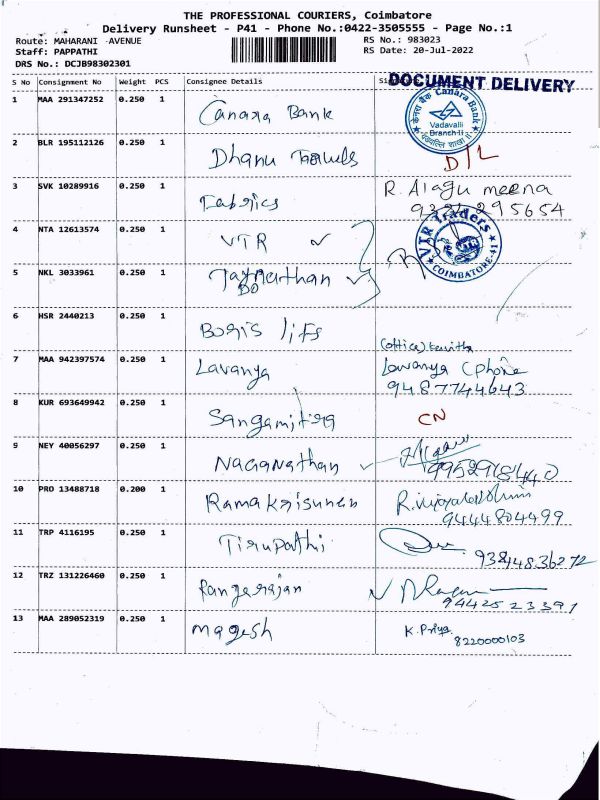 THE PROFESSIONAL COURIERS, Coimbatore
Delivery Runsheet - P41 - Phone No.:0422-3505555 - Page No.:1
Route: MAHARANI AVENUE
RS No.: 983023
Staff: PAPPATHI
RS Date: 20-Jul-2022
DRS No.: DCJB98302301
S No Consignment No Weight PCS Consignee Details
DOCUMENT DELIVERY
1 MAA 291347252 0.250 1 Canara Bank
केनरा बैंक Canara Bank
Vadavalli
Branch-II
2 BLR 195112126 0.250 1 Dhanu D/L
3 SVK 10289916 0.250 1 Fabrics R. Alagu meena
4 NTA 12613574 0.250 1 VTR
VTR Traders
COIMBATORE-41
5 NKL 3033961 0.250 1
6 HSR 2440213 0.250 1 Boris life
(office) Kavitha
7 MAA 942397574 0.250 1 Lavanya Lavanya (phone
9487744643
8 KUR 693649942 0.250 1 Sangamitra CN
9 NEY 40056297 0.250 1 Naganathan
10 PRO 13488718 0.200 1 Ramakrisunan
9444804499
11 TRP 4116195 0.250 1 Tirupathi
93844836272
12 TRZ 131226460 0.250 1 Rangarajan
9442523391
13 MAA 289052319 0.250 1 Magesh K. Priya
8220000103